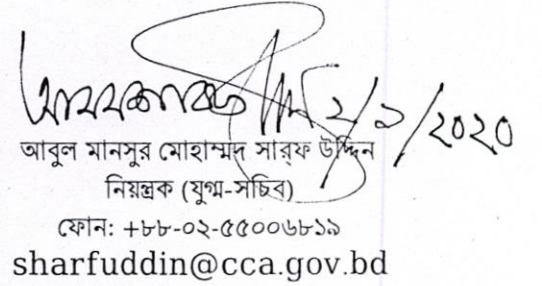 ২/১/২০২০
আবুল মানসুর মোহাম্মদ সার্‌ফ উদ্দিন
নিয়ন্ত্রক (যুগ্ম-সচিব)
ফোন: +৮৮-০২-৫৫০০৬৮১৯
sharfuddin@cca.gov.bd